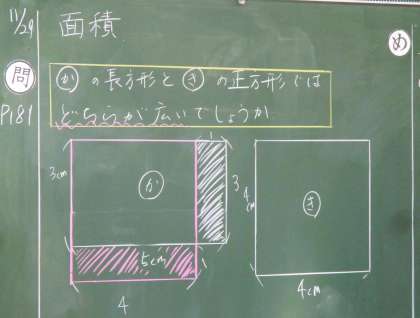 11/29 面積
問 め
P181
かの長方形ときの正方形では
どちらが広いでしょうか
1
3cm か 3 4cm き
5cm 1
4 4cm